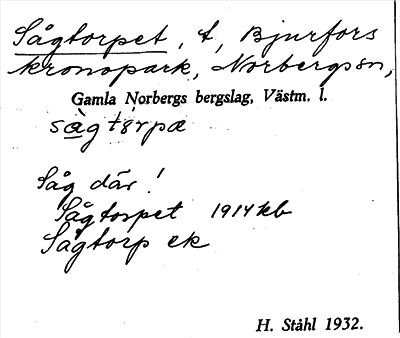 Sågtorpet, t, Bjurfors
kronopark, Norbergs sn,
Gamla Norbergs bergslag, Västm. l.
Såg där!
Sågtorpet 1914 kb
Sågtorp ek
H. Ståhl 1932.